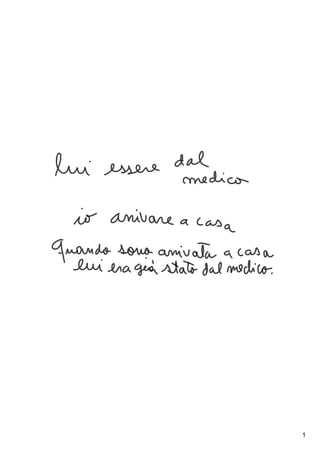 lui essere dal
medico
io arrivare a casa
Quando sono arrivata a casa
lui era già stato dal medico.
1